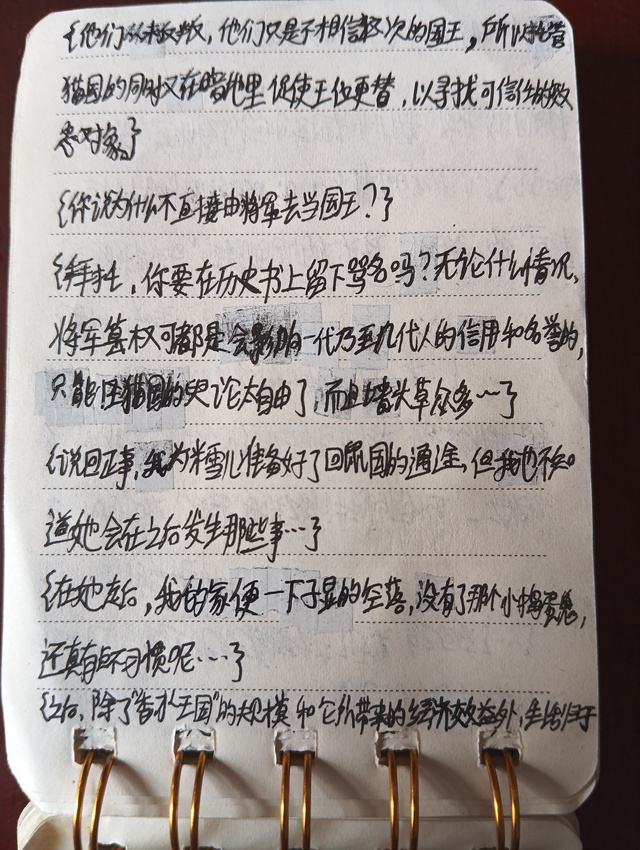 {他们从未叛，他们只是不相信这次的国王，所以在管
猫国的同时又在暗地里促使王位更替，以寻找可信任
对象。}
{你说为什么不直接由将军去当国王？}
{拜托，你要在历史书上留下骂名吗？无论什么情况、
将军篡权可都是会影响一代乃至几代人的信用和名誉的，
只能怪猫国的史论太自由了，而且墙头草众多…}
{说回正事，我为米雪儿准备好了回鼠国的通途，但我也不知
道她会在之后发生那些事…}
{在她走后，我的家便一下子显的空落，没有了那个小捣蛋鬼，
还真有点不习惯呢…}
{之后，除了“香水王国”的规模和它所带来的经济效益外，生活归于